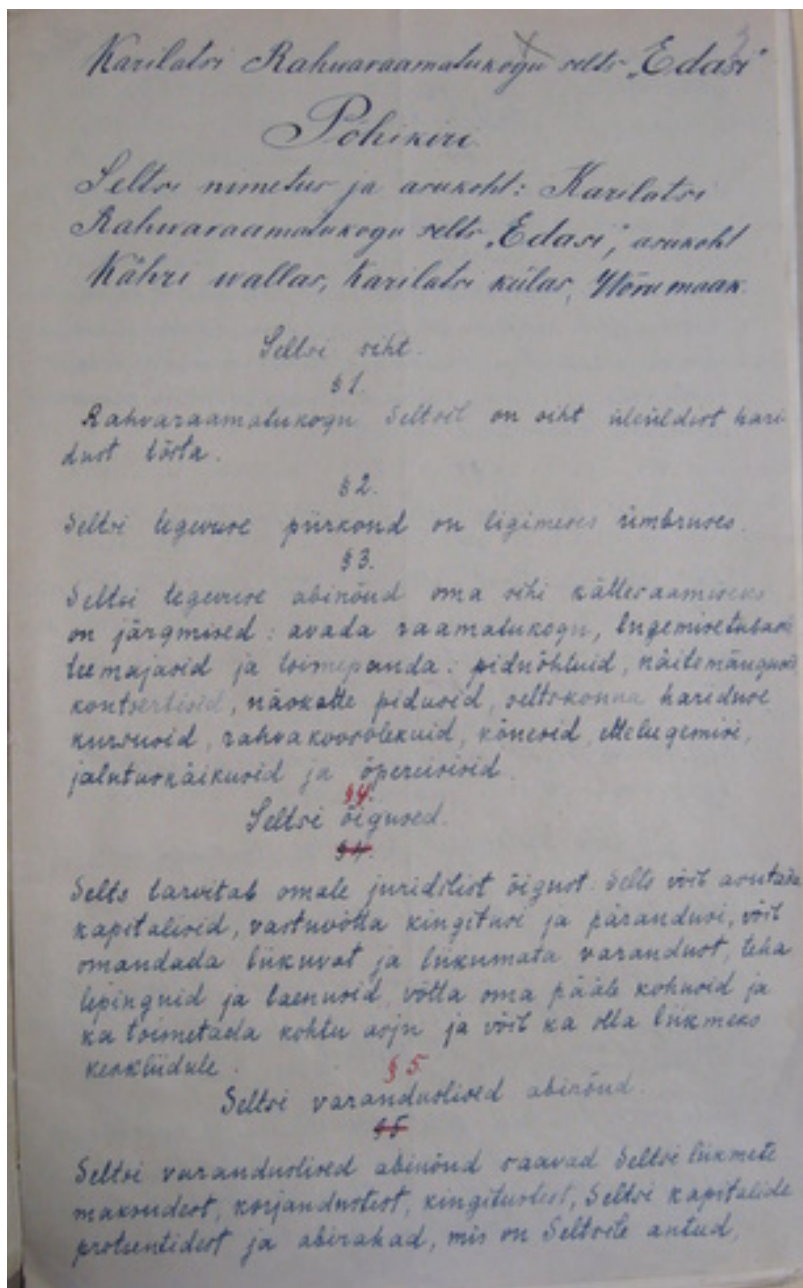 Karilatsi Rahvaraamatukogu selts „Edasi"
Põhikiri.
Seltsi nimetus ja asukoht: Karilatsi
Rahvaraamatukogu selts „Edasi", asukoht
Kähri wallas, Karilatsi külas, Wõrumaak.
Seltsi siht.
§ 1.
Rahvaraamatukogu Seltsil on siht üleüldist hari
dust tõsta.
§ 2.
Seltsi tegevuse piirkond on ligimeses ümbruses.
§ 3.
Seltsi tegevuse abinõud oma sihi kättesaamiseks
on järgmised: avada raamatukogu, lugemisetubasi
teemajasid ja toimepanda: piduõhtuid, näitemängusi
kontsertisid, näokatte pidusid, seltskonna hariduse
kursusid, rahvakoosolekuid, kõnesid, ettelugemisi,
jalutuskäikusid ja õpereisisid.
§ 4.
Seltsi õigused.
§ 4.
Selts tarvitab omale juridilist õigust. Selts võib asutada
kapitalisid, vastuvõtta kingitusi ja pärandusi, võib
omandada liikuvat ja liikumata varandust, teha
lepinguid ja laenusid, võtta oma pääle kohusid ja
ka toimetada kohtu asju ja võib ka olla liikmeks
keskliidule.
§ 5
Seltsi varanduslised abinõud.
§ 5
Seltsi varanduslised abinõud saavad Seltsi liikmete
maksudest, korjandustest, kingitustest, Seltsi kapitalide
protsentidest ja abirahad, mis on Seltsile antud,